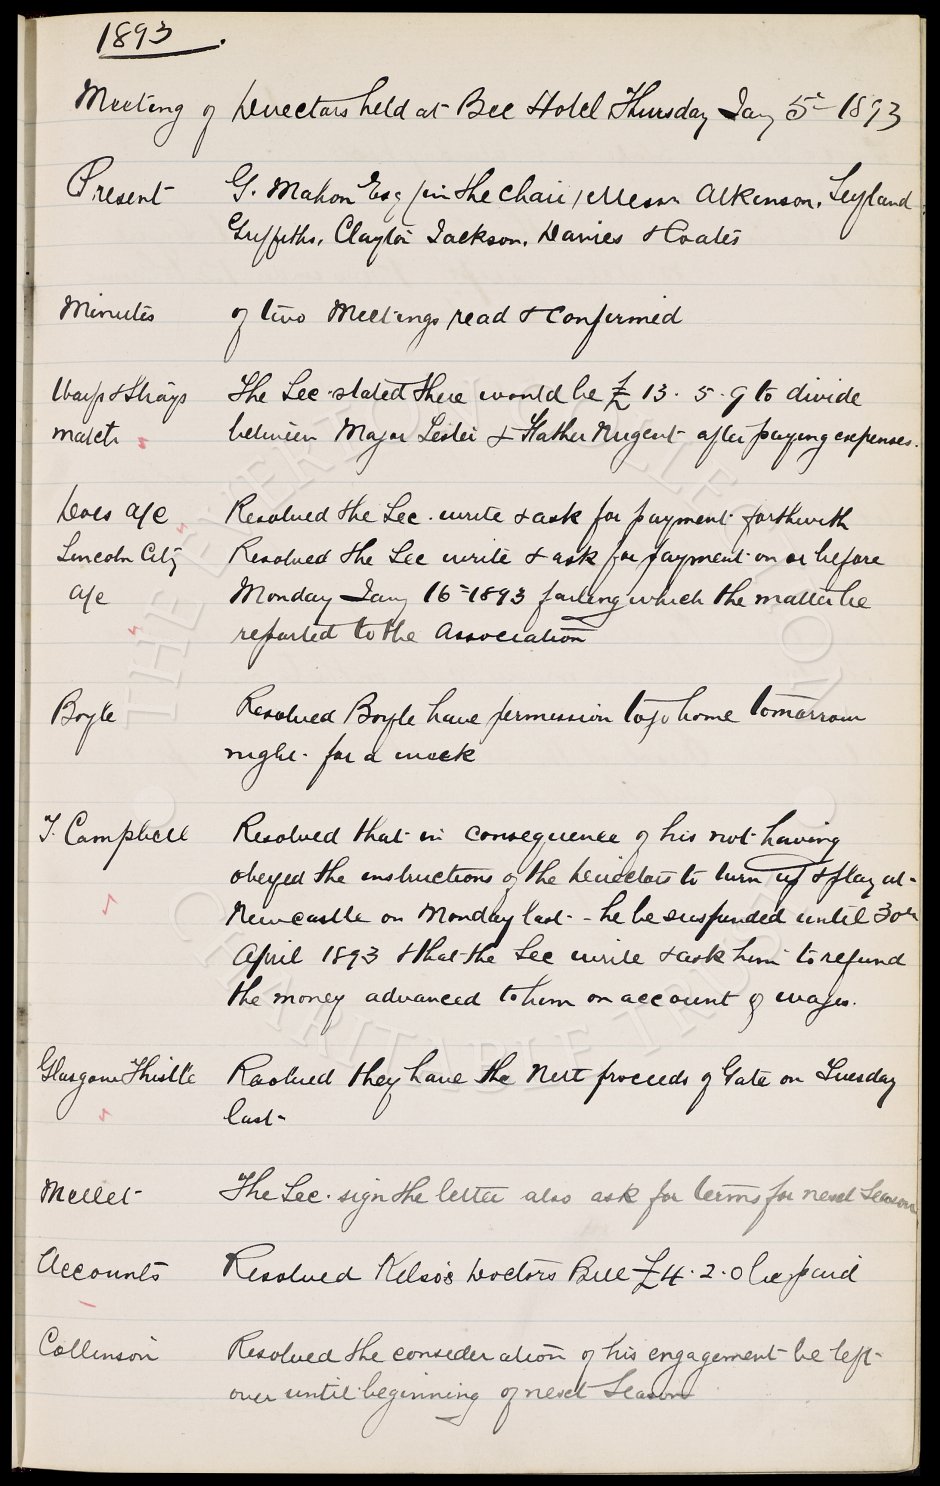 1893.
Meeting of Directors held at Bee Hotel Thursday Jany 5th 1893
Present G. Mahon Esq (in the chair) Messrs Atkinson, Leyland
Griffiths, Clayton Jackson, Davies & Coates
Minutes of two Meetings read & confirmed
Waifs & Strays The Sec. stated there would be £13.5.9 to divide
match between Major Lester & Father Nugent after paying expenses.
Does a/c Resolved the Sec. write & ask for payment forthwith
Lincoln City Resolved the Sec write & ask for payment on or before
a/c Monday Jany 16th 1893 failing which the matter be
reported to the Association
Boyle Resolved Boyle have permission to go home tomorrow
night for a week
T. Campbell Resolved that in consequence of his not having
obeyed the instructions of the Directors to turn up & play at
Newcastle on Monday last - he be suspended until 30th
April 1893 & that the Sec write & ask him to refund
the money advanced to him on account of wages.
Glasgow Thistle Resolved they have the Nett proceeds of Gate on Tuesday
last
Mellet The Sec. sign the letter also ask for terms for next Season
Accounts Resolved Kelso's Doctors Bill £4.2.0 be paid
Collinson Resolved the consideration of his engagement be left
over until beginning of next Season
THE EVERTON COLLECTION
CHARITABLE TRUST